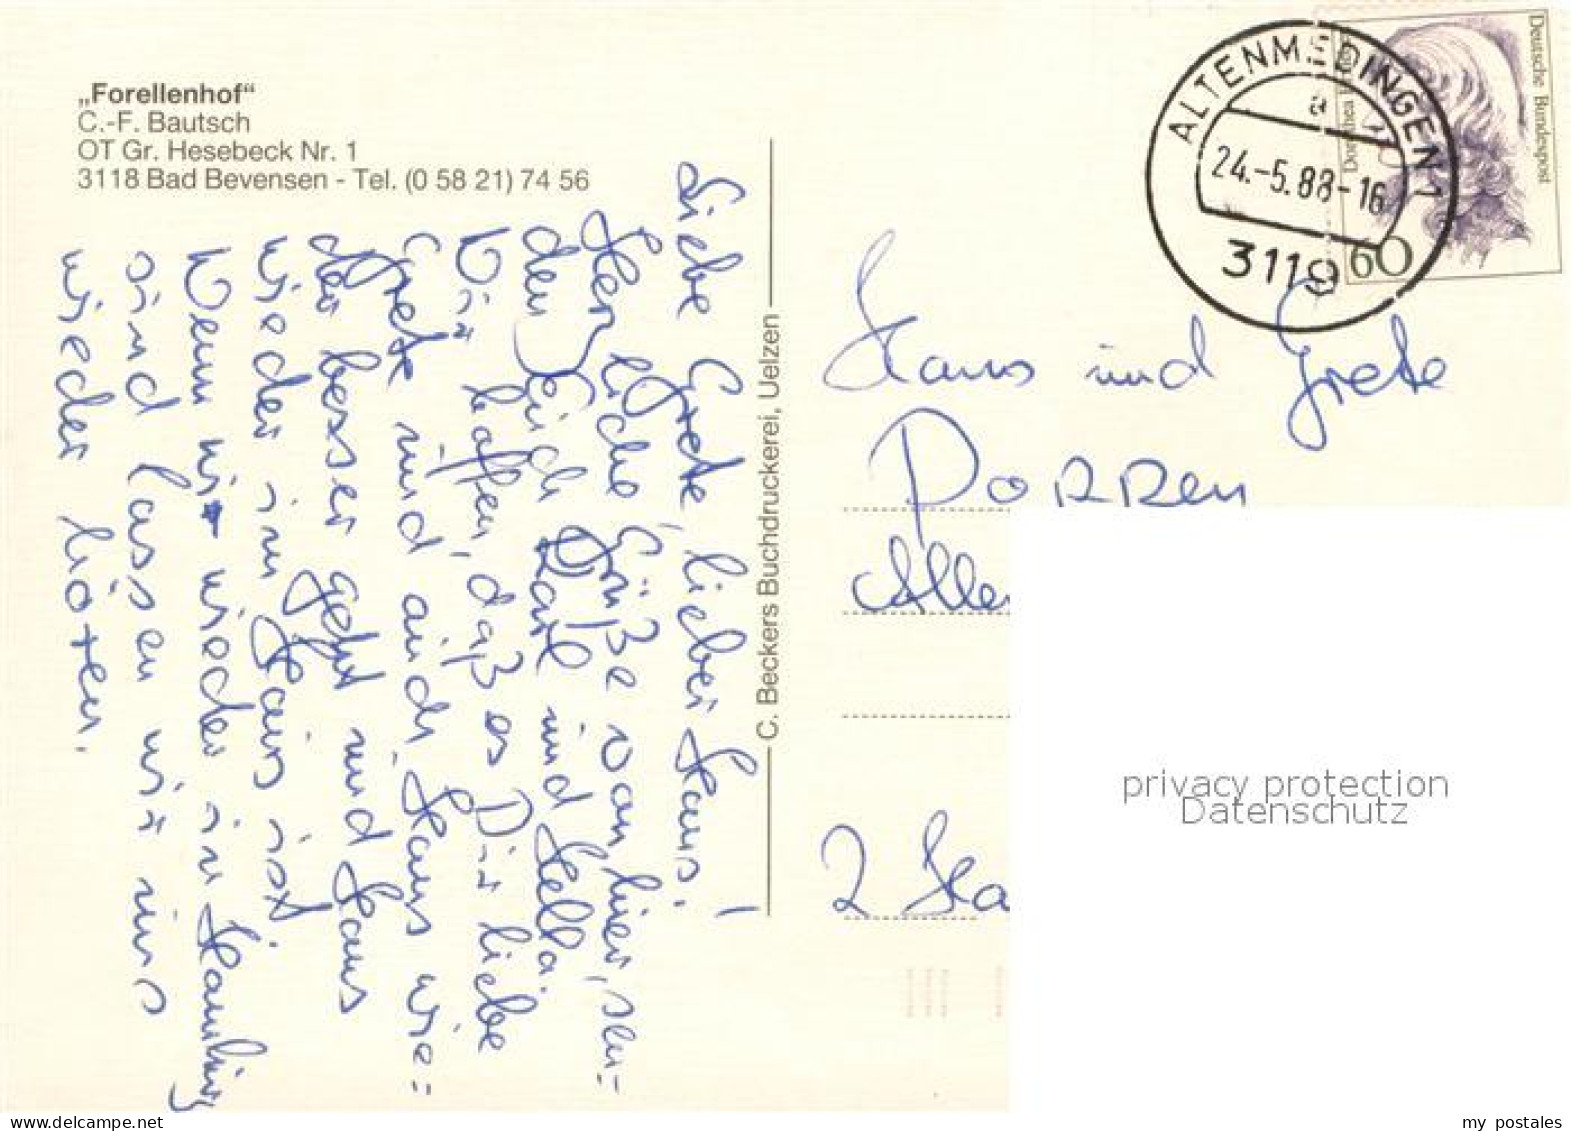 „Forellenhof“
C.-F. Bautsch
OT Gr. Hesebeck Nr. 1
3118 Bad Bevensen - Tel. (0 58 21) 74 56
Liebe Grete, lieber Hans!
Herzliche Grüße von hier, sen=
den Euch Karl und Hella.
Wir hoffen, daß es Dir liebe
Grete und auch Hans wie=
der besser geht und Hans
wieder im Haus ist
Wenn wir wieder in Hamburg
sind lassen wir uns
wieder hören.
C. Beckers Buchdruckerei, Uelzen
ALTENMEDINGEN 1
a
24.-5.88-16
3119
Deutsche Bundespost
Dorothea
60
Hans und Grete
DORREN
Aller
2 Ha
privacy protection
Datenschutz
www.delcampe.net
my_postales